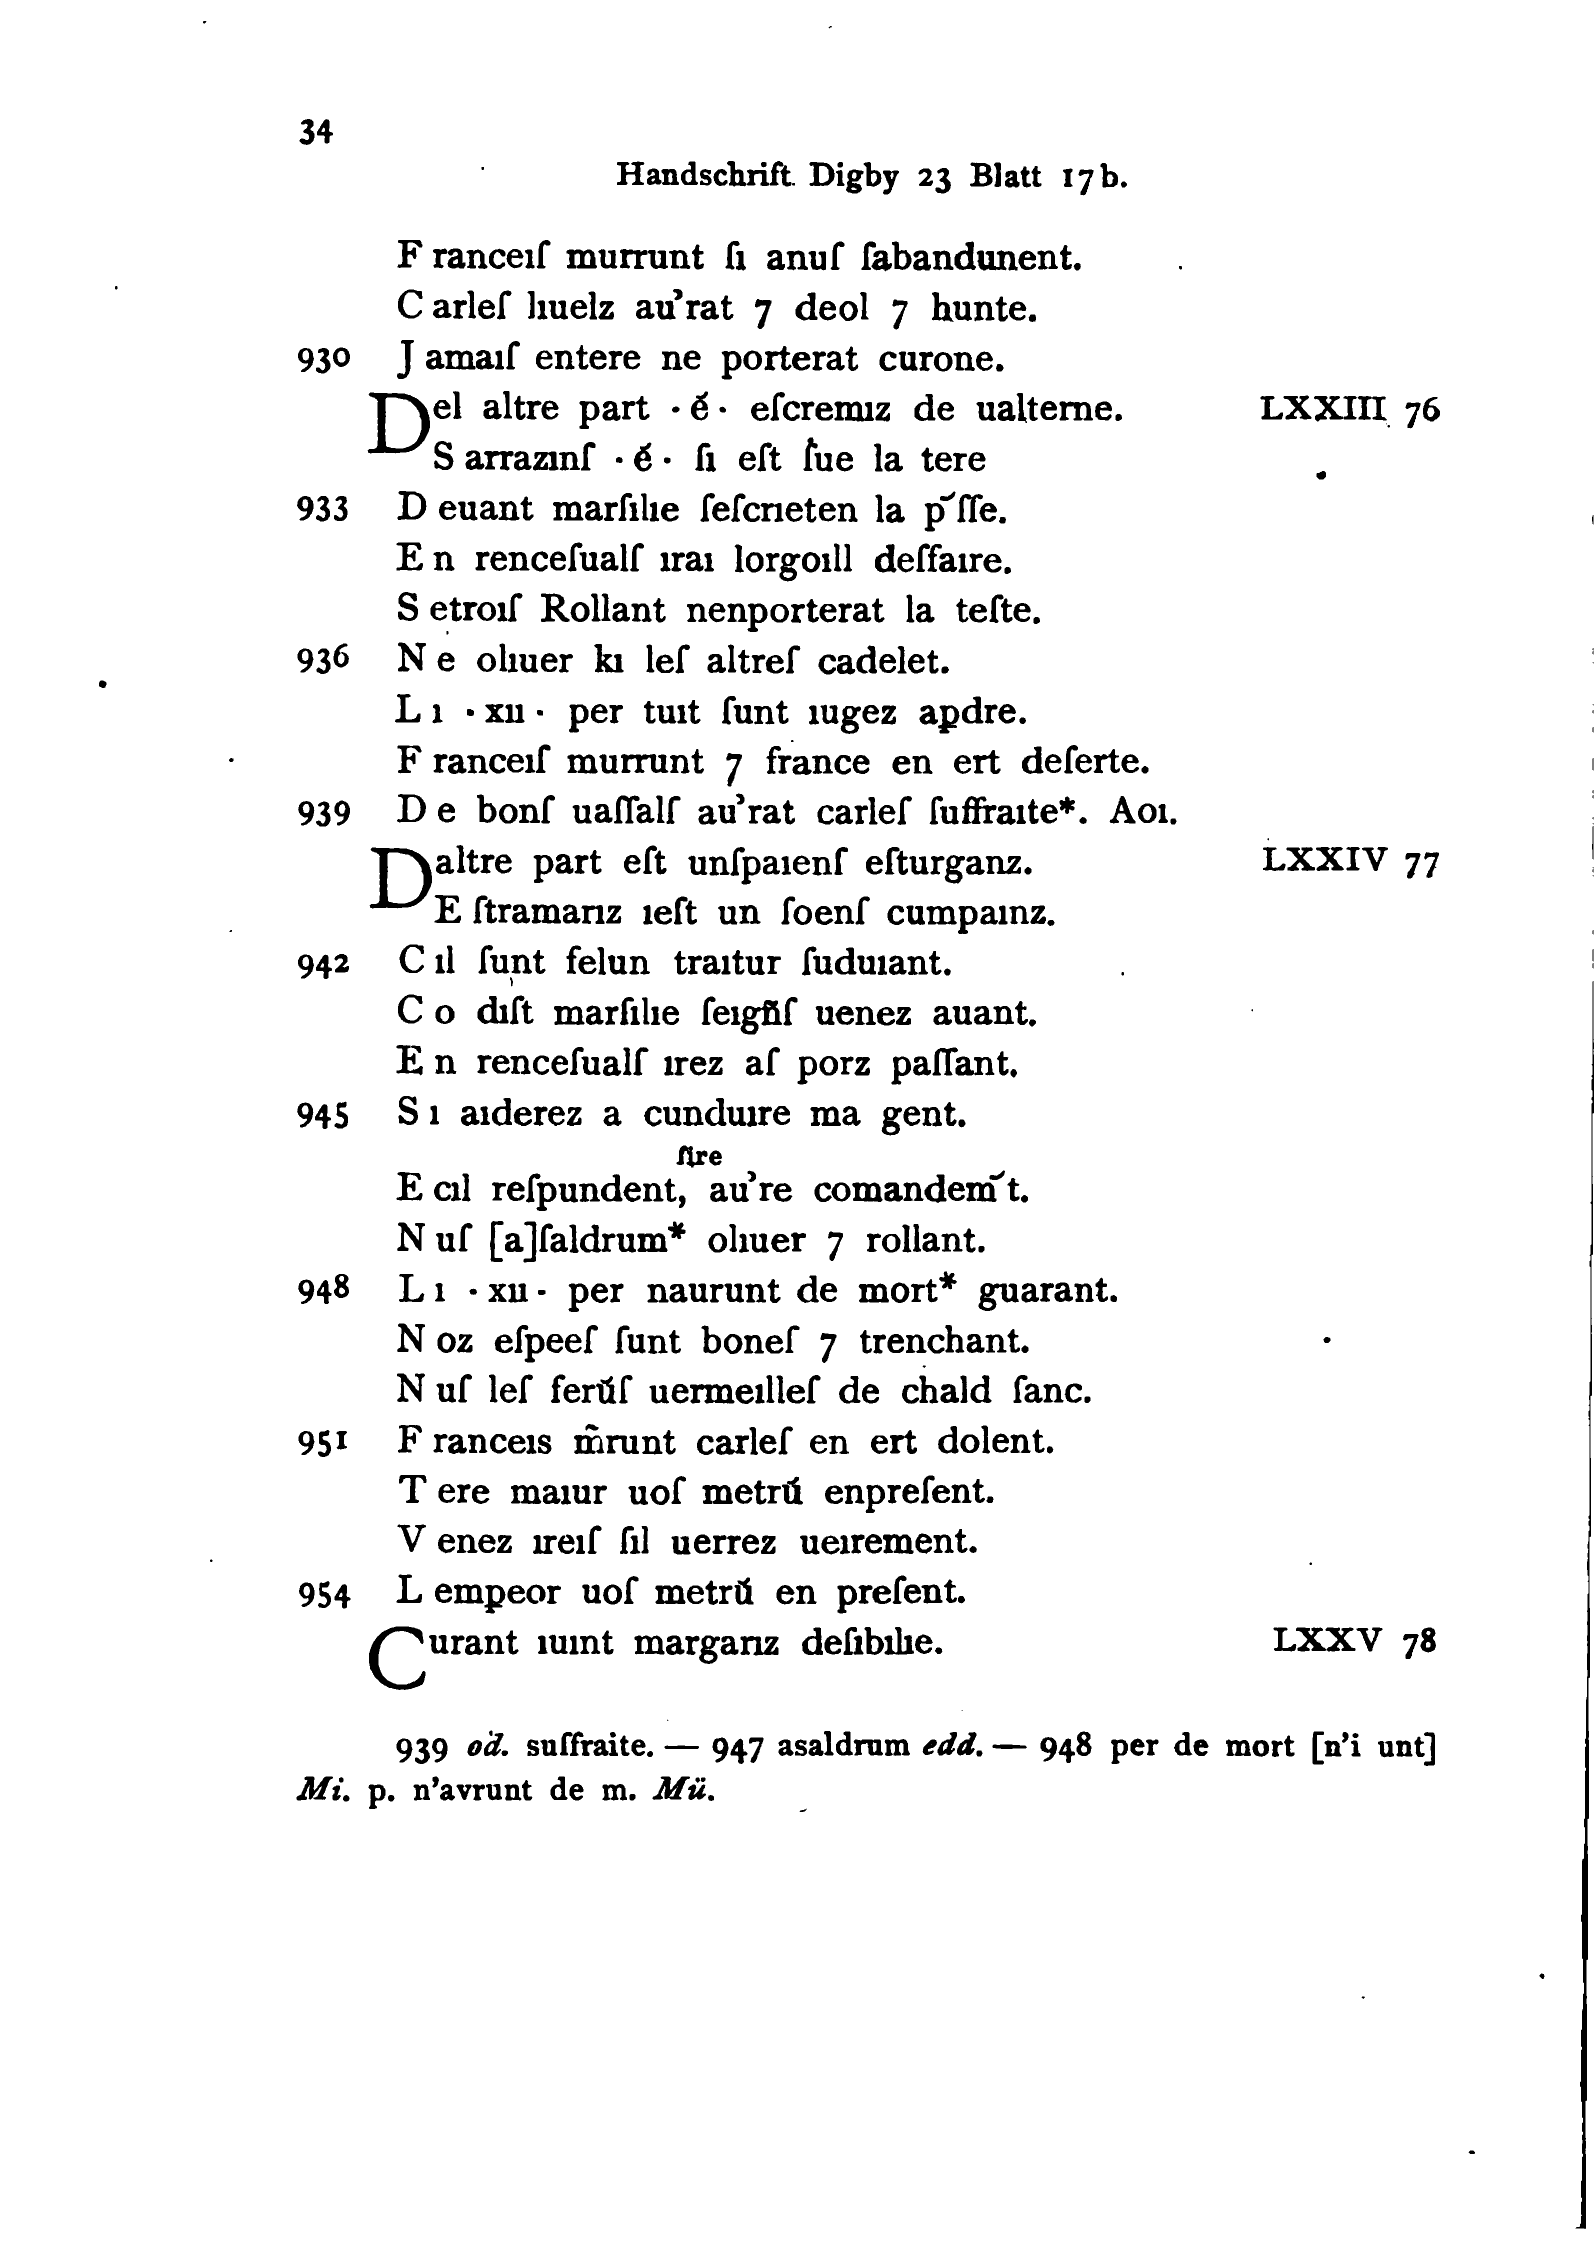 34
Handschrift Digby 23 Blatt 17b.
F ranceıſ murrunt ſı anuſ ſabandunent.
C arleſ lıuelz au’rat 7 deol 7 hunte.
930 J amaıſ entere ne porterat curone.
Del altre part · é̆ · eſcremız de ualterne. LXXIII 76
S arrazınſ · é̆ · ſı eſt ſue la tere
933 D euant marſılıe ſeſcrıeten la p̄ſſe.
E n renceſualſ ıraı lorgoıll deſfaıre.
S etroıſ Rollant nenporterat la teſte.
936 N e olıuer kı leſ altreſ cadelet.
L ı · xıı · per tuıt ſunt ıugez apdre.
F ranceıſ murrunt 7 france en ert deſerte.
939 D e bonſ uaſſalſ au’rat carleſ ſuffraıte*. Aoı.
Daltre part eſt unſpaıenſ eſturganz. LXXIV 77
E ſtramarız ıeſt un ſoenſ cumpaınz.
942 C ıl ſunt felun traıtur ſuduıant.
C o dıſt marſılıe ſeıgn̄ſ uenez auant.
E n renceſualſ ırez aſ porz paſſant.
945 S ı aıderez a cunduıre ma gent.
ſıre
E cıl reſpundent, au’re comandem̄t.
N uſ [a]ſaldrum* olıuer 7 rollant.
948 L ı · xıı · per naurunt de mort* guarant.
N oz eſpeeſ ſunt boneſ 7 trenchant.
N uſ leſ ferŭſ uermeılleſ de chald ſanc.
951 F ranceıs m̃runt carleſ en ert dolent.
T ere maıur uoſ metrŭ enpreſent.
V enez ıreıſ ſıl uerrez ueırement.
954 L empeor uoſ metrŭ en preſent.
Curant ıuınt margarız deſıbılıe. LXXV 78
939 od. suffraite. — 947 asaldrum edd. — 948 per de mort [n’i unt]
Mi. p. n’avrunt de m. Mü.